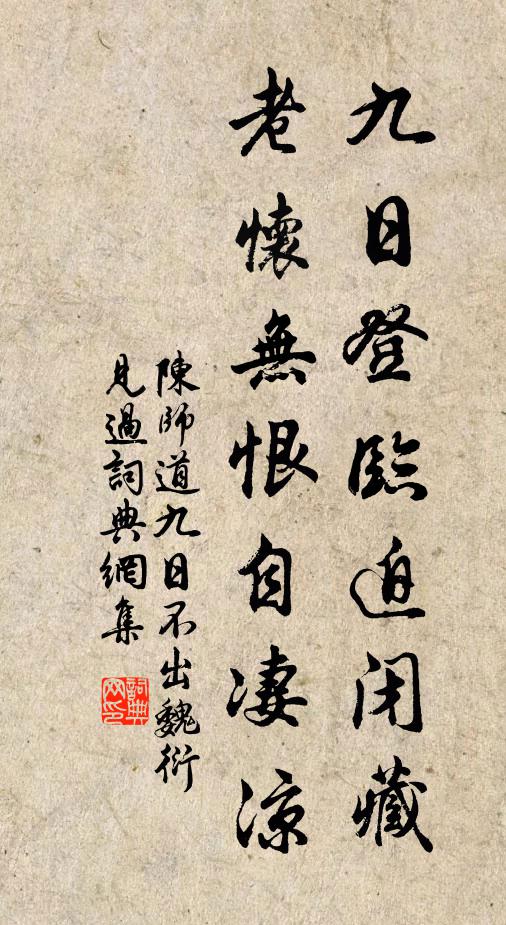 九日登臨迫閉藏
老懷無恨自凄涼
陳師道九日不出魏衍
見過詞典網集
詞典网印